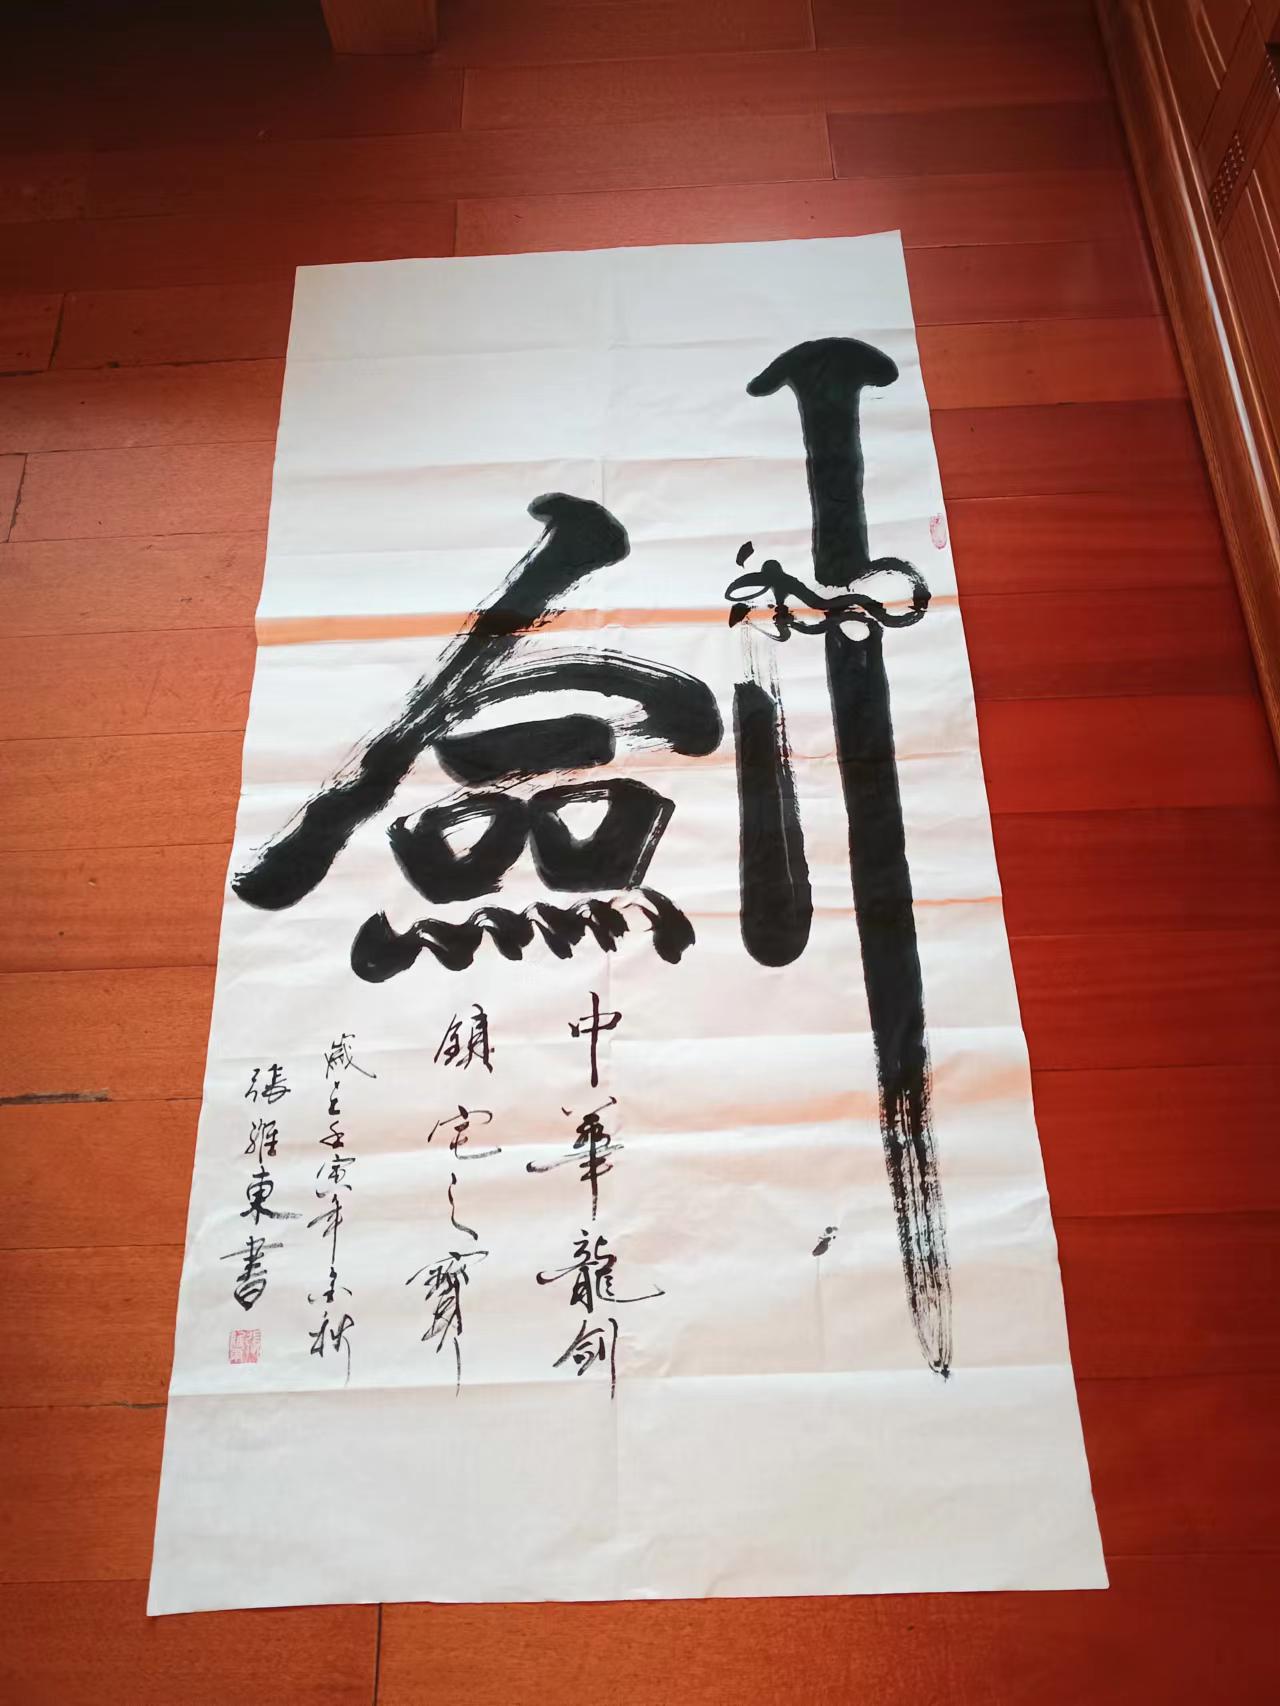 劍
中華龍劍
鎮宅之寶
歲在壬寅年金秋
張維東書